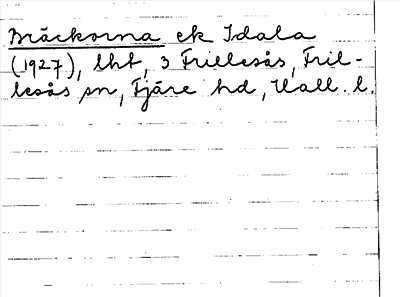 Bräckorna ek Idala
(1927), lht, 3 Frillesås, Fril-
lesås sn, Fjäre hd, Hall. l.